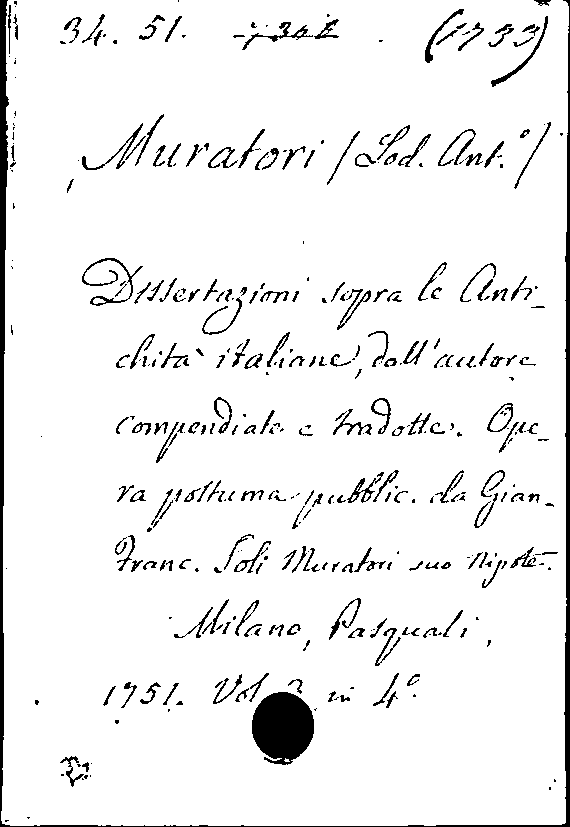 34. 51. (1733)
Muratori / Lod. Ant.º /
Dissertazioni sopra le Anti-
chità italiane, dall'autore
compendiate e tradotte. Ope-
ra postuma pubblic. da Gian-
Franc. Soli Muratori suo Nipote.
Milano, Pasquali,
1751. Vol. 3 in 4º.